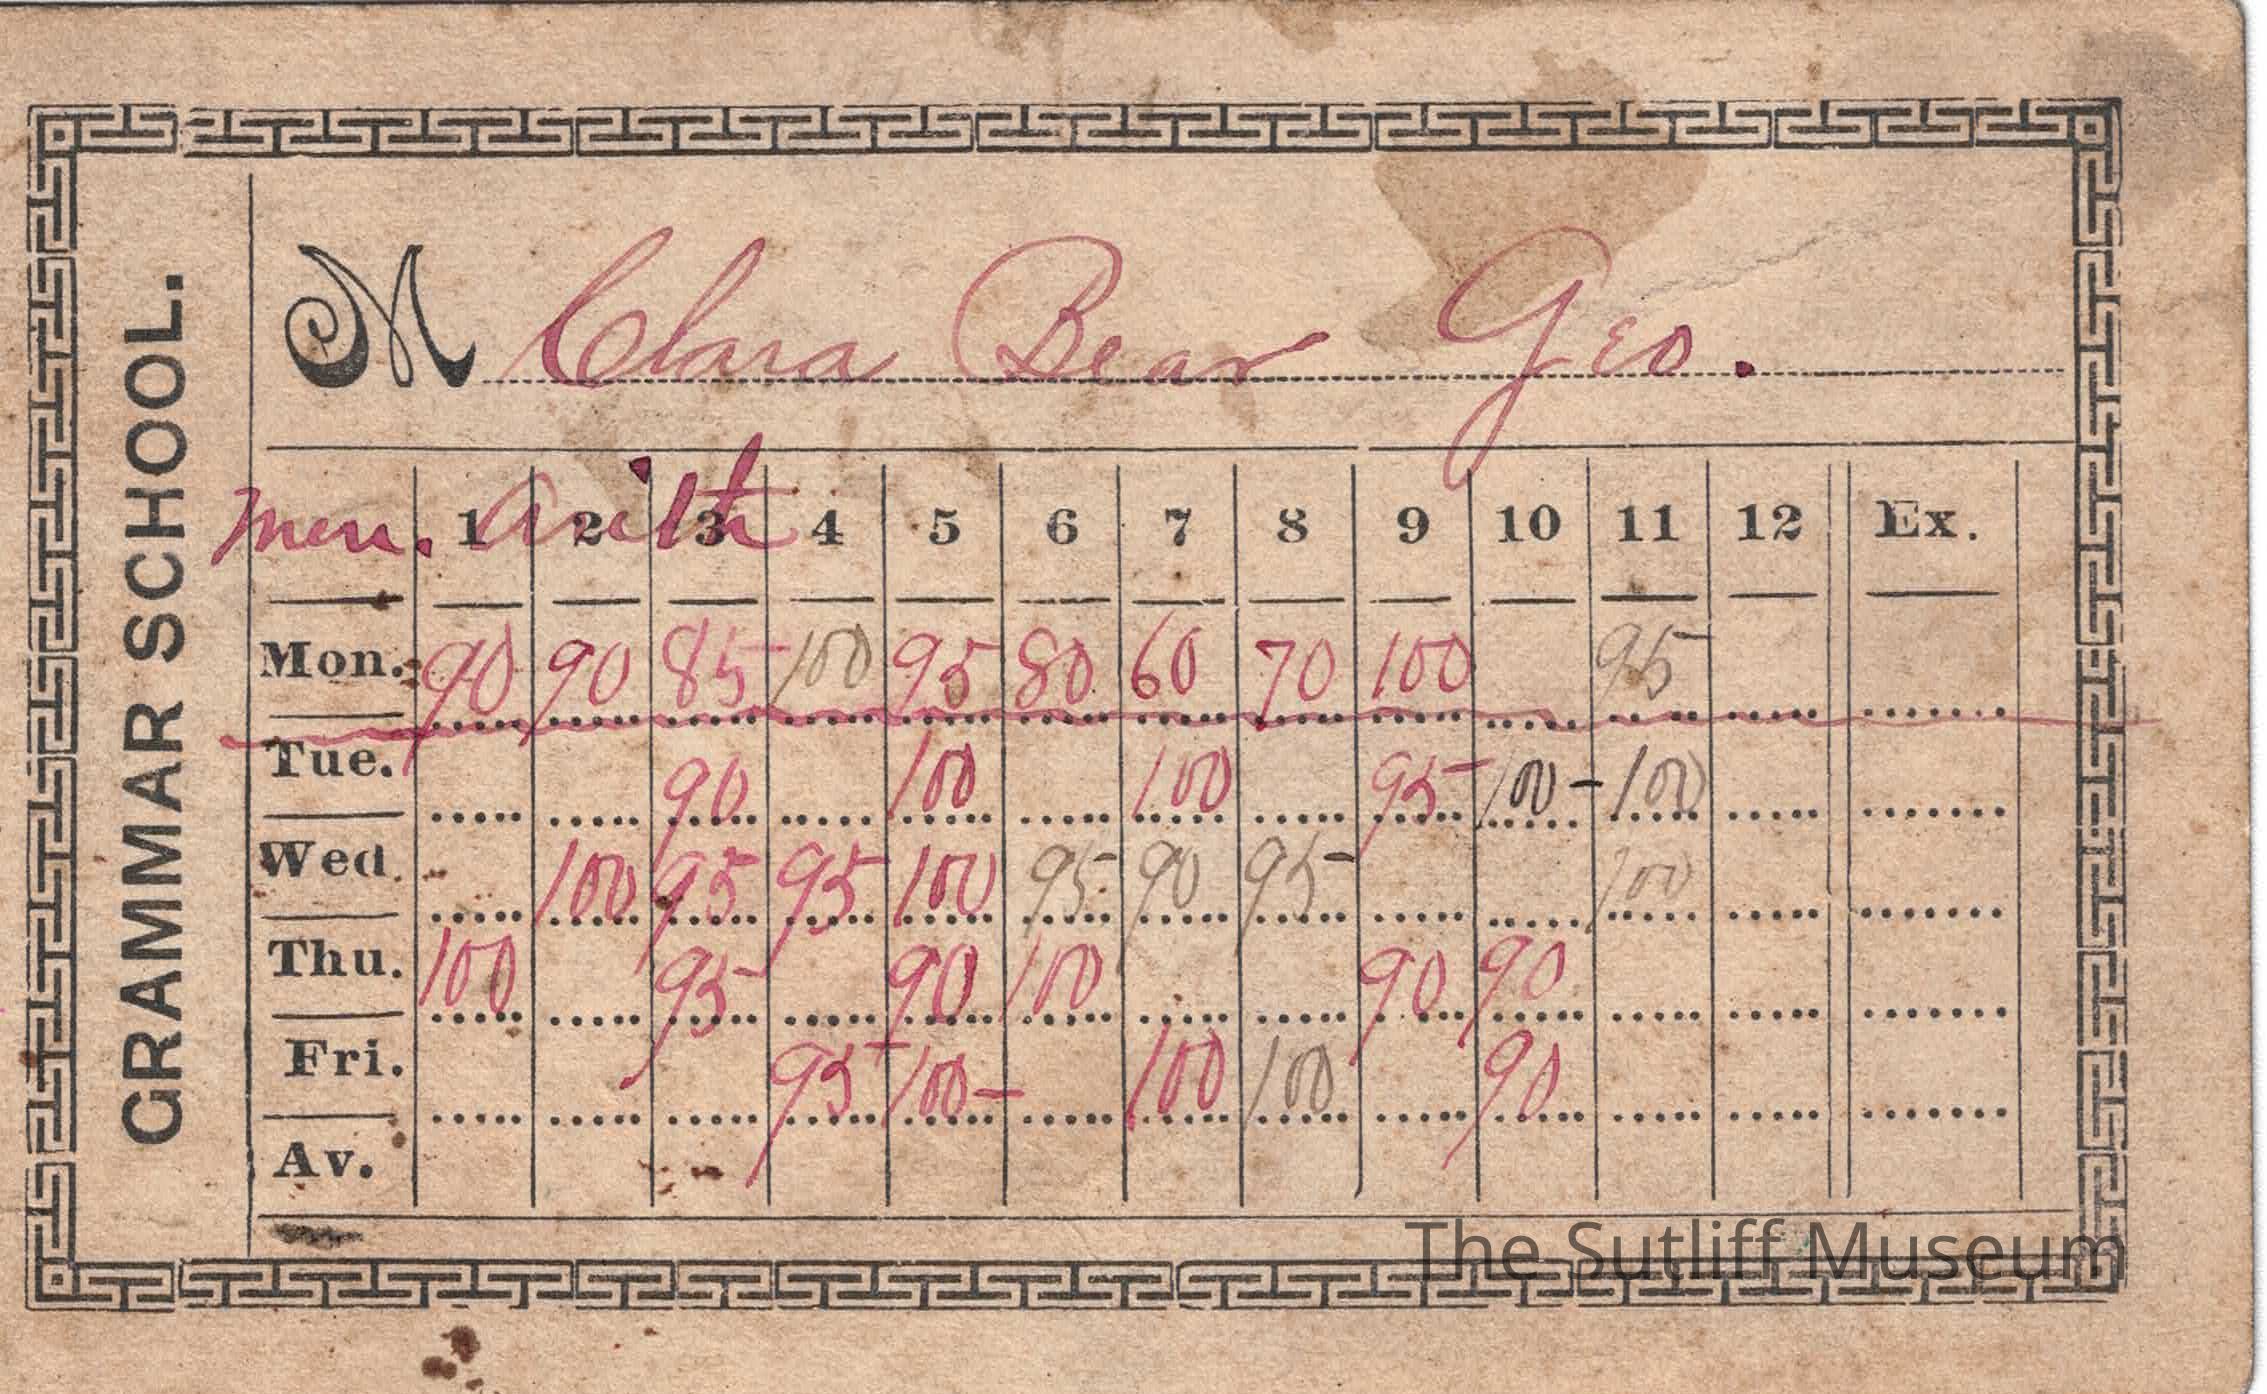 GRAMMAR SCHOOL.
M Clara Bear Geo.
Men. Arith
1 2 3 4 5 6 7 8 9 10 11 12 Ex.
Mon. 90 90 85 100 95 80 60 70 100 95
Tue. 90 100 100 95 100 - 100
Wed. 100 95 95 100 95 90 95 100
Thu. 100 95 90 100 90 90
Fri. 95 100 - 100 100 90
Av.
The Sutliff Museum